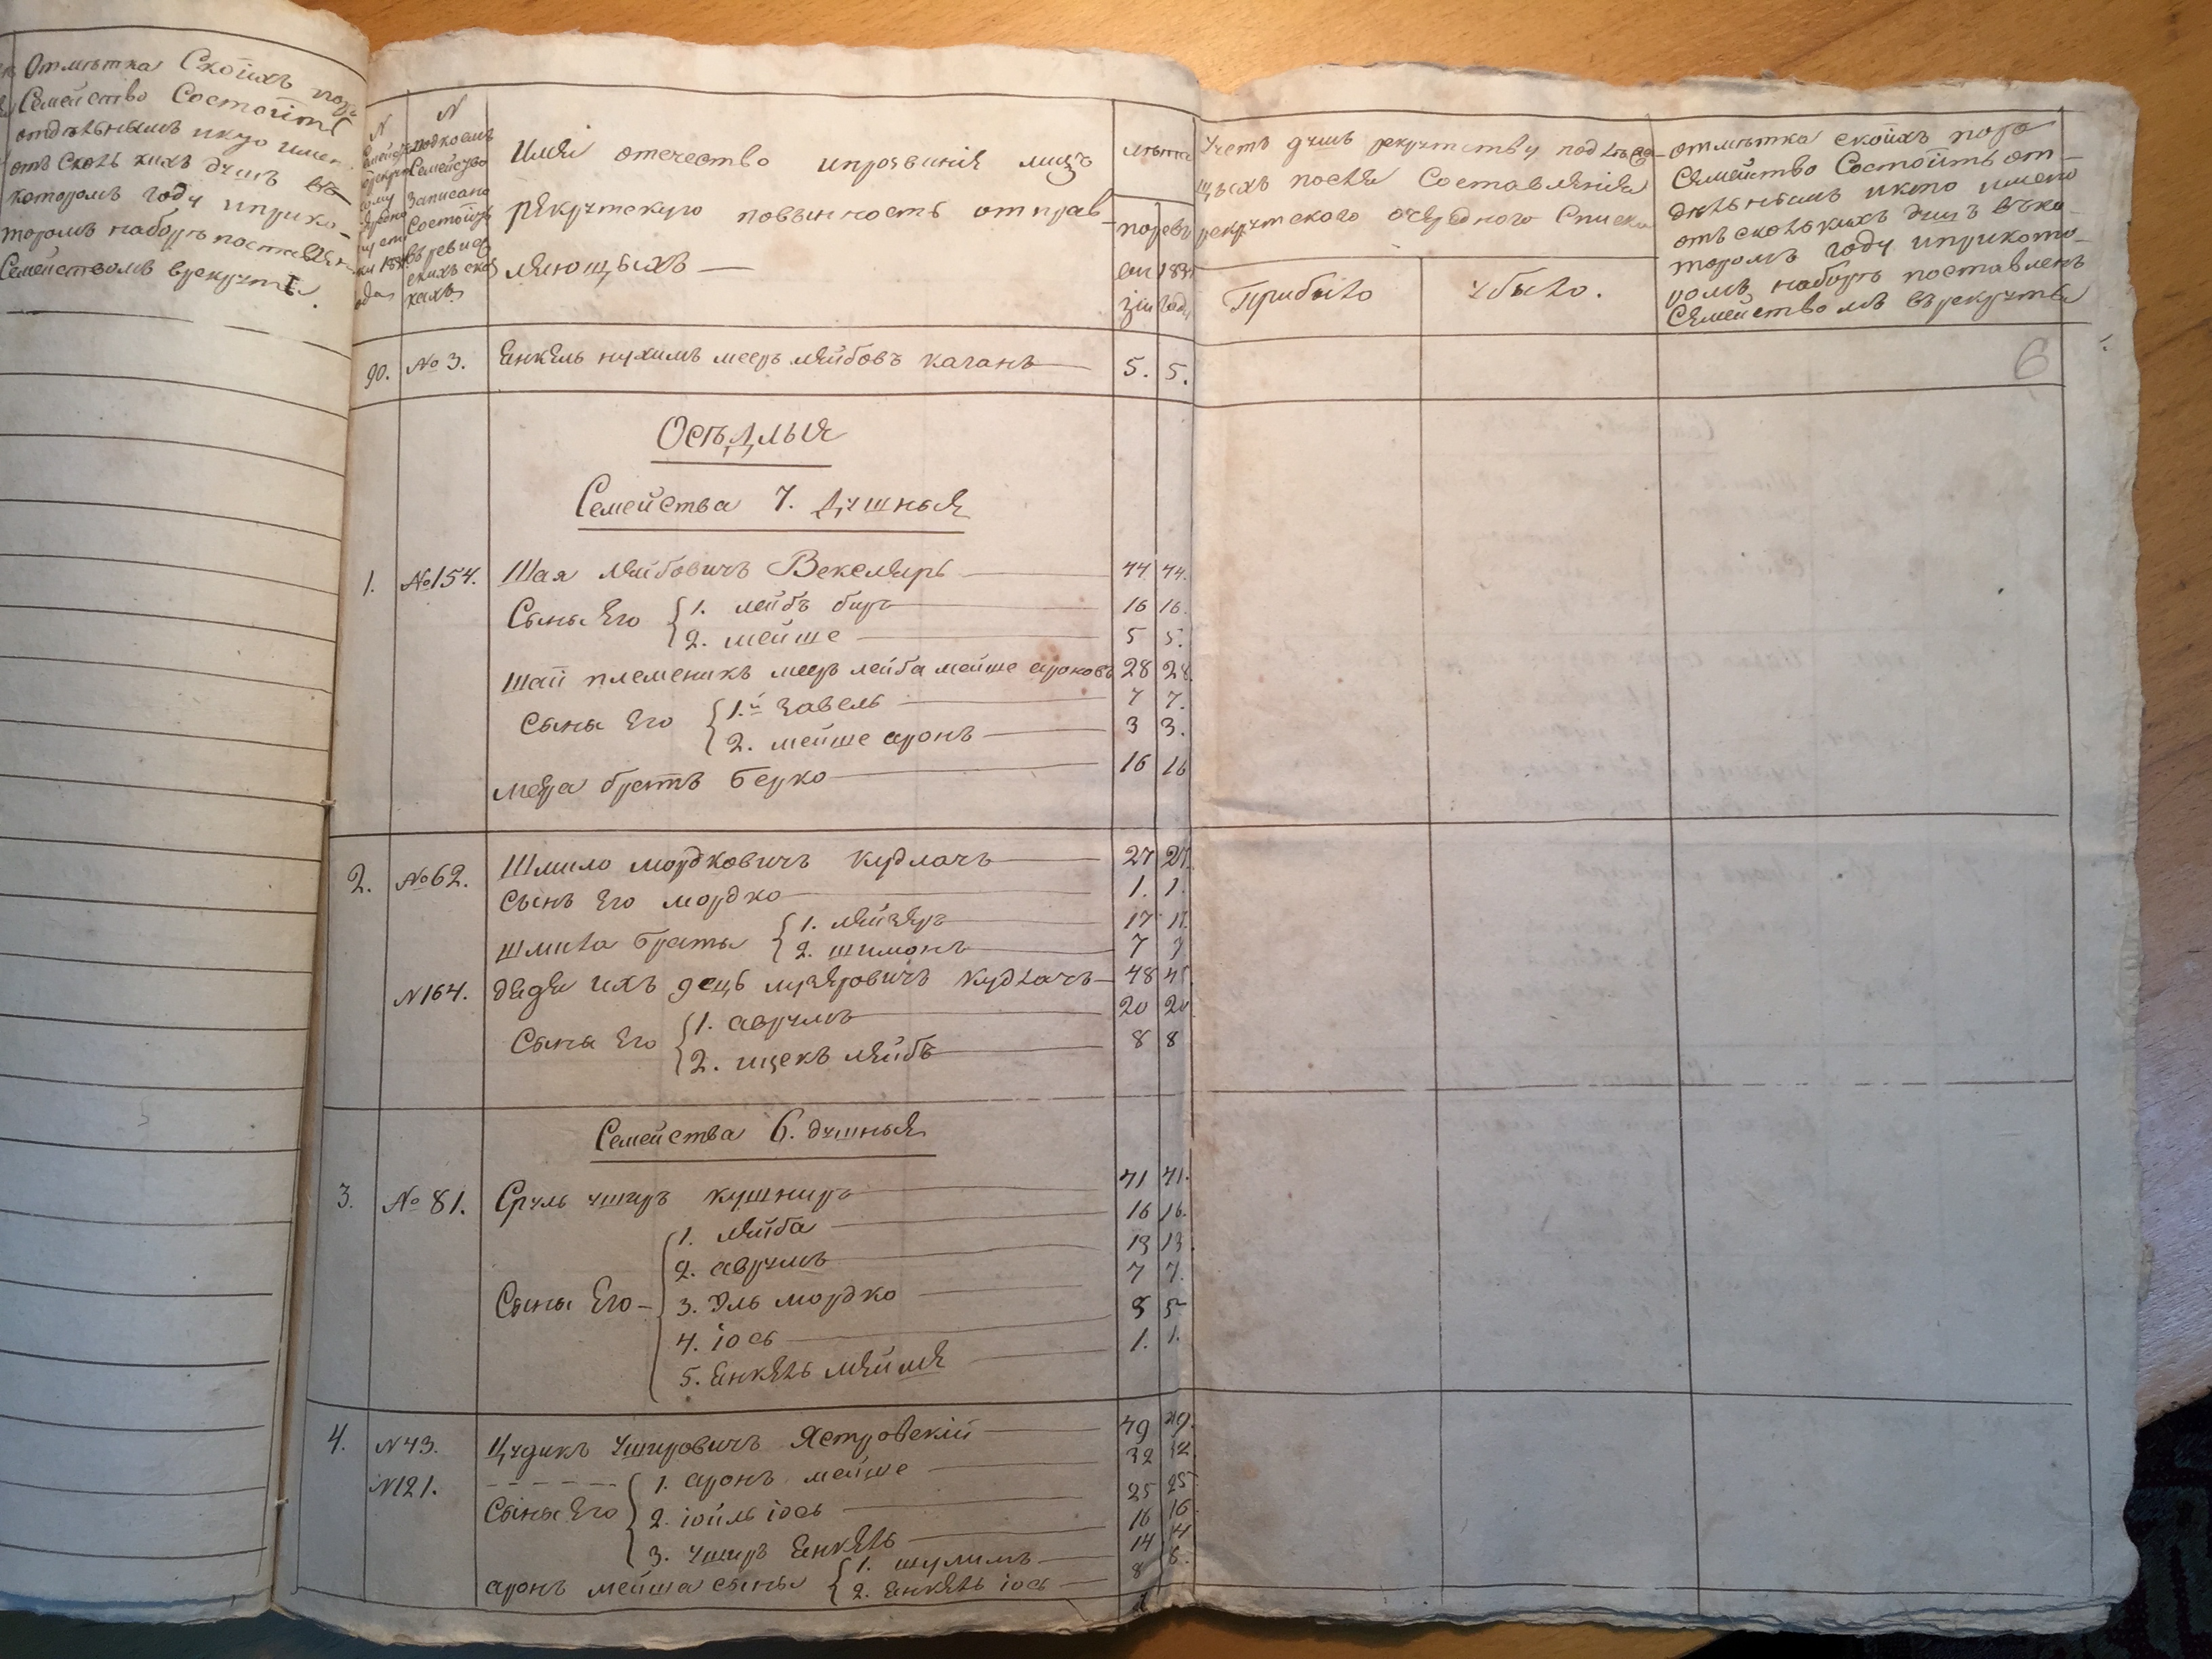 Отмѣтка Скоихъ пор
Семейство Состоитъ
отдѣльнымъ икто имен
отъ сколь кихъ душъ въ
которомъ году ипри ко-
торомъ наборѣ поставлен
Семействомъ врекруты.
N
N
подкоемъ
Семейство
Записано
Состоитъ
въ ревиз
скихъ ска
кахъ
Имя отечество ипрозвиніе лицъ
рекрутскую повинность отправ-
ляющыхъ —
лѣта
по реви
зіи
183
году
Учетъ душъ рекрутству подлежа-
щыхъ после Составленія
рекрутского очередного Списка
Прибыло
убыло.
отмѣтка скоихъ пора
Семейство Состоитъ от-
дѣльнымъ икто имено
отъ сколькихъ душъ въ ко-
торомъ году иприкото-
ромъ наборѣ поставленъ
Семействомъ врекруты
90. №3. Енкель нухимъ меер лейбовъ каганъ 5. 5.
6
Осѣдлыя
Семейства 7. душныя
1. №154. Шая лейбовичъ Векслеръ 44 44.
Сыны Его { 1. лейбъ беръ 16 16.
2. мейше 5 5.
шаи племеникъ меер лейба мейше ароновъ 28 28.
Сыны Его { 1.й завель 7 7.
2. мейше аронъ 3 3.
меера братъ Берко 16 16
2. №62. Шмило мордковичъ кудлачъ 27 27.
Сынъ Его мордко 1. 1.
шмила браты { 1. лейзеръ 17 17.
2. шимонъ 7 7
N164. дядя ихъ лузеровичъ кудлачъ 48 48
Сыны Его { 1. аврумъ 20 20
2. ицекъ лейбъ 8 8
Семейства 6. душныя
3. №81. Сруль ушеръ кушниръ 41 41.
Сыны Его { 1. лейба 16 16.
2. аврумъ 13 13.
3. Эль мордко 7 7.
4. іось 5 5
5. Енкель мейше 1. 1.
4. N43. Цудикъ ушеровичъ Ястровскій 49 49.
N121. Сыны Его { 1. аронъ мейше 32 32.
2. іойль іось 25 25
3. ушеръ Енкель 16 16
аронъ мейша сыны { 1. шулимъ 14 14
2. Енкель іось 8 8.